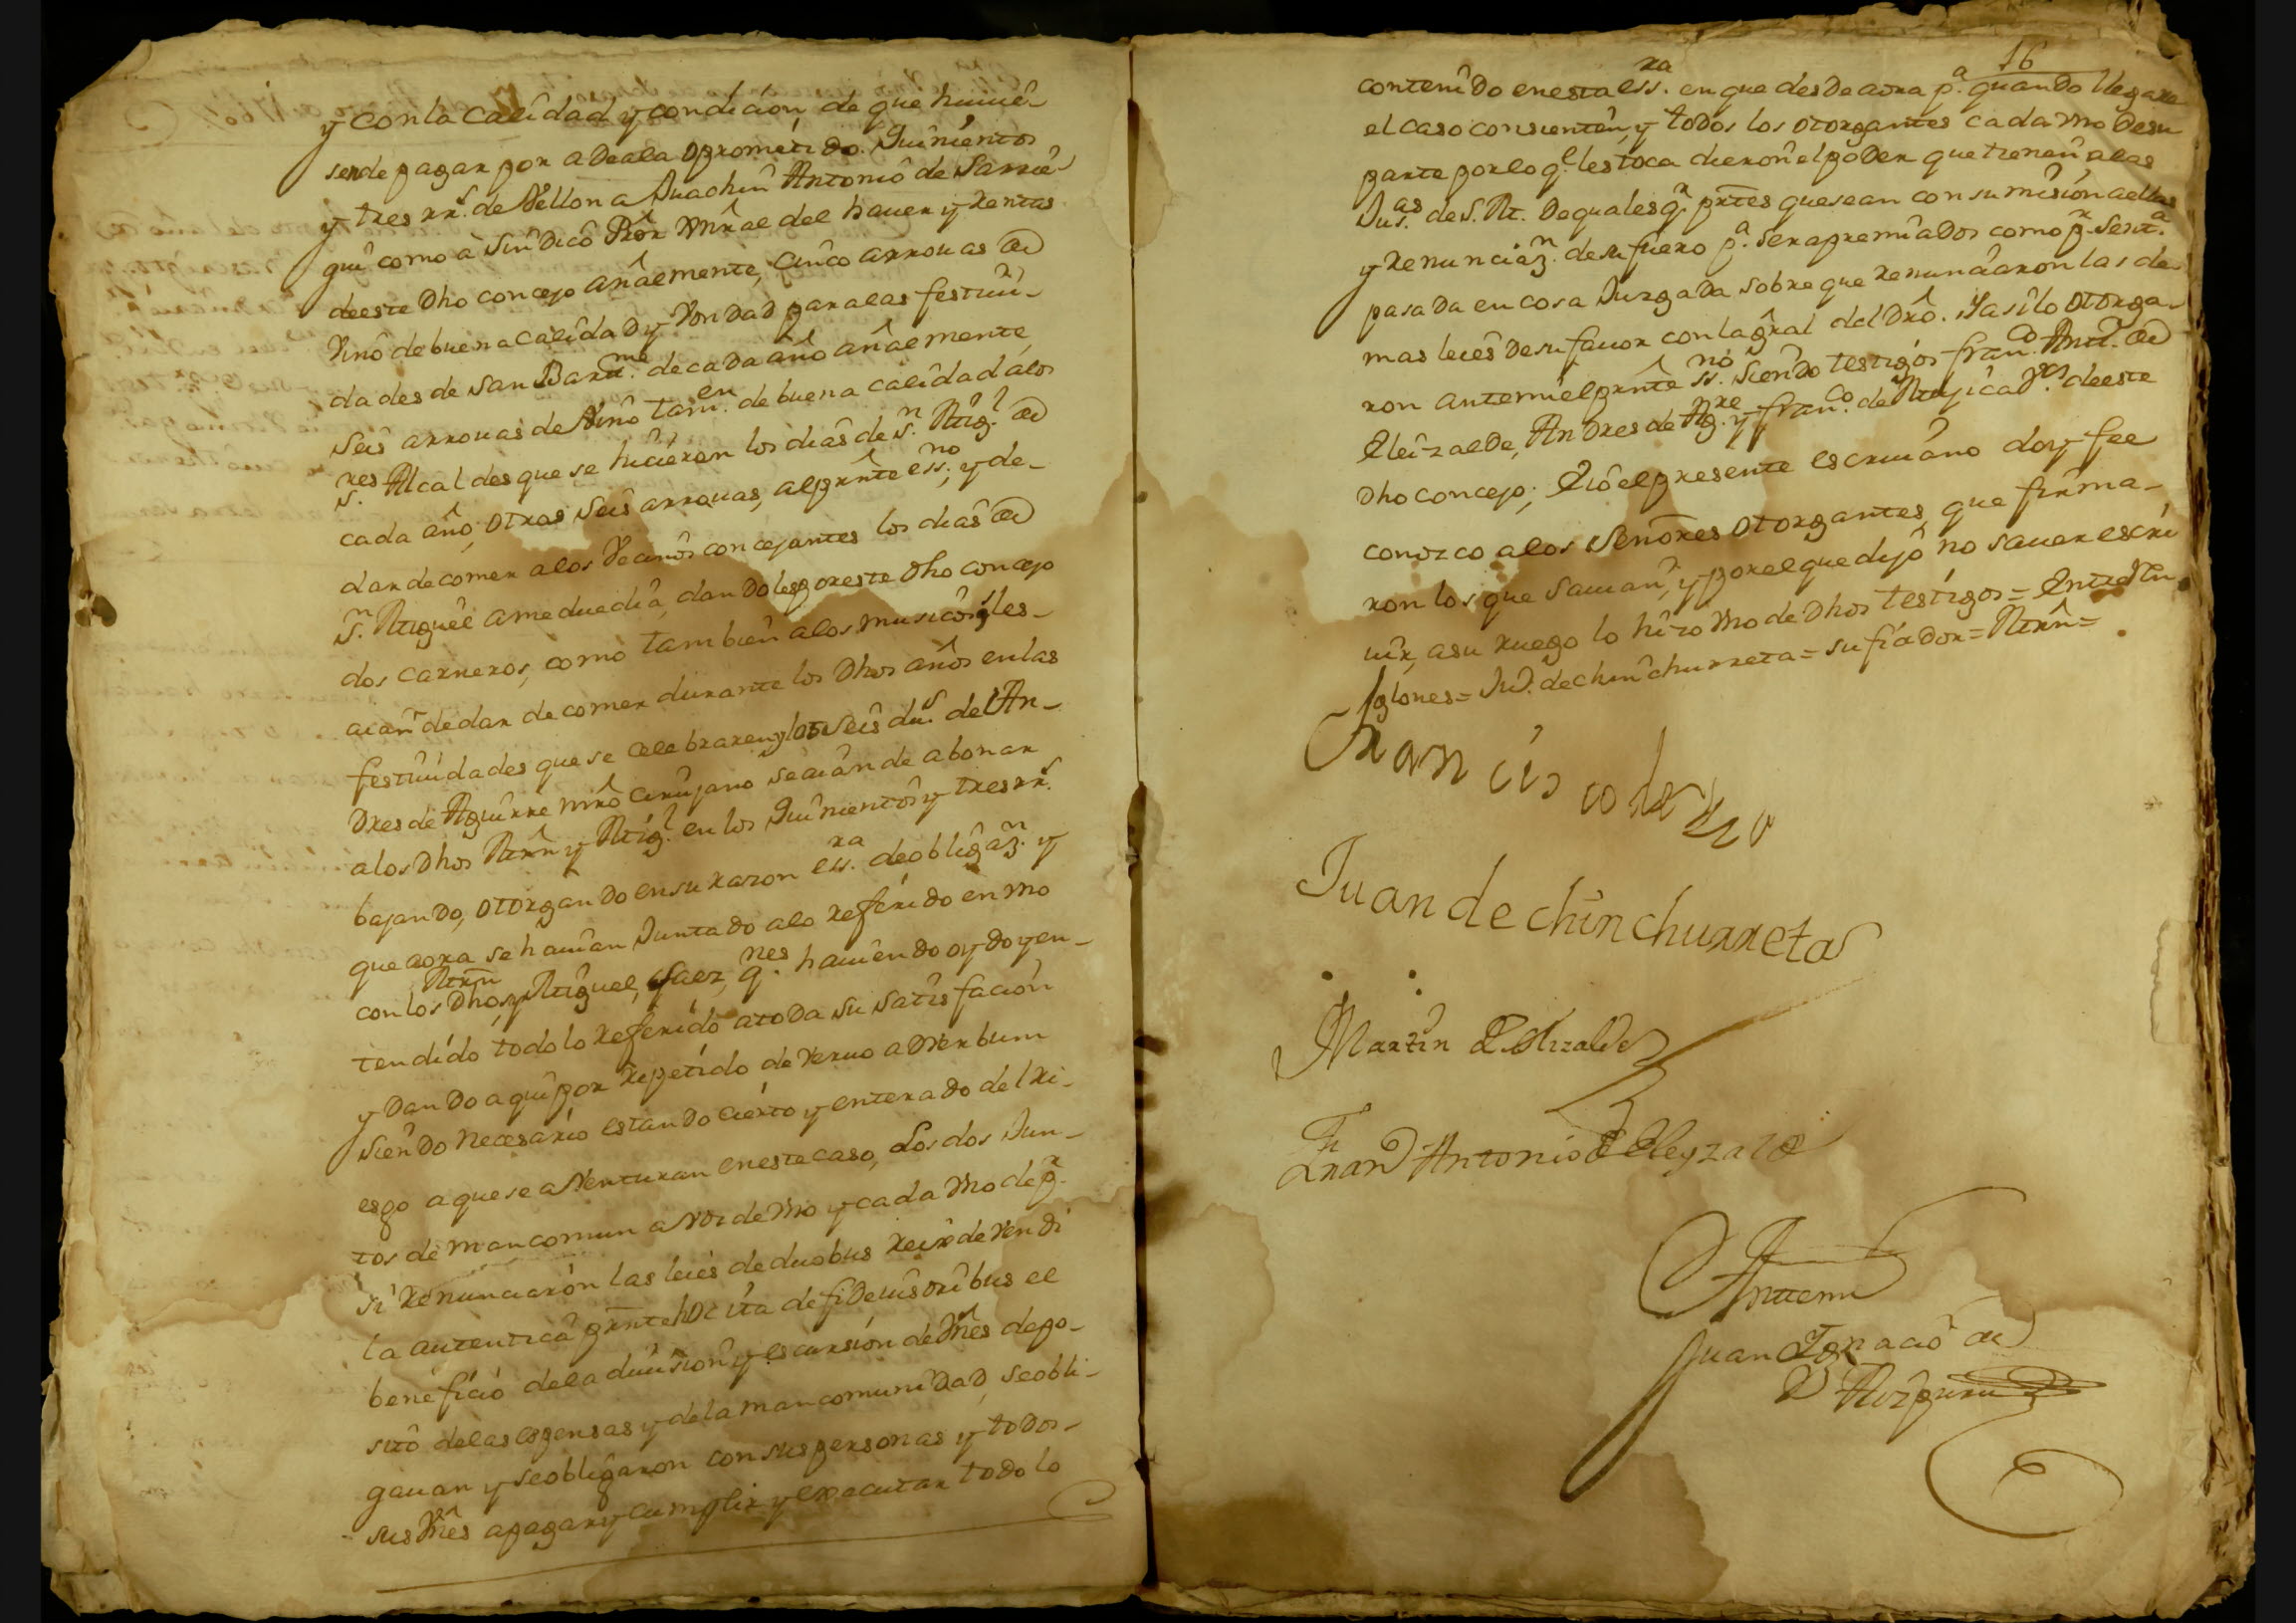 y con la calidad y condicion de que huuie-
sen de pagar por adeala o prometido Quinientos
y tres rr.s de Vellon a Juachin Antonio de Sarrie-
gui como à Sindico Pror Mral del hauer y Rentas
de este Dho concejo anâlmente, cinco arrouas de
Vino de buena calidad y Vondad para las festiui-
dades de San Barme. de cada año anâlmente,
Seis arrouas de Vino tamen. de buena calidad alos
S.res Alcaldes que se hicieron los dias de S.n Mig.l de
cada año, otras Seis arrouas, al prnte ess.no y de-
dar de comer a los Vecinos concejantes los dias de
S.n Miguel a mediodia, dandoles por este Dho concejo
dos carneros, como tambien a los musicos, y les-
aian de dar de comer durante los Dhos años en las
festiuidades que se celebraren, y los Seis du.s de An-
dres de Aguirre mro cirujano se aian de abonar
alos Dhos Mrn y Mig.l en los Quinientos y tres rr.s
bajando, otorgando en su razon ess.ra de obligaz.n y
que aora se hauian Juntado alo referido en vno
con los Dhos Mrn y Miguel, Saez, q.nes hauiendo oydo y en-
tendido todo lo referido atoda su Satisfacion
y dando aqui por repetido de Veruo adVerbum
Siendo necesario estando cierto y enterado del ri-
esgo aque se aVenturan en este caso, Los dos Jun-
tos de mancomun aVoz de Vno y cada Vno de p.r
si renunciaron las leies de duobus reis de Vendi
la autentica prnte hoc ita de fideiusoribus el
beneficio de la diuision y escursion de Vnes depo-
sito de las espensas y de la mancomunidad, se obli-
gauan y se obligaron con sus personas y todos-
sus Vnes a pagar y cumplir y executar todo lo
16
contenido en esta ess.ra en que desde aora p.a quando llegare
el caso consienten, y todos los otorgantes cada vno de su
parte por lo q.l les toca dieron el poder que tienen alas
Jus.as de S. M. de qualesq.r prtes que sean con sumision aellas
y renunciaz.n de su fuero p.a ser apremiados como p.r Sent.a
pasada en cosa Juzgada sobre que renunciaron las de-
mas leies de su fauor con la gral del Dro. Y asi lo otorga-
ron ante mi el prnte ss.no siendo testigos fran.co Ant.o de
Eleizalde, Andres de Ag.re y fran.co de Mujica V.os de este
Dho concejo; E io el presente escriuano doy fee
conozco a los Señores otorgantes, que firma-
ron los que Sauian, y por el que dijo no Sauer escri
uir, asu ruego lo hizo Vno de Dhos testigos = Entre Rn
glones = Ju.o de chinchurreta = su fiador = Mrn =
Juan de chinchurreta
Martin de Elizalde
Fran Antonio de Eleyzalde
Antemi
Juan Ignacio de
Aizpuru